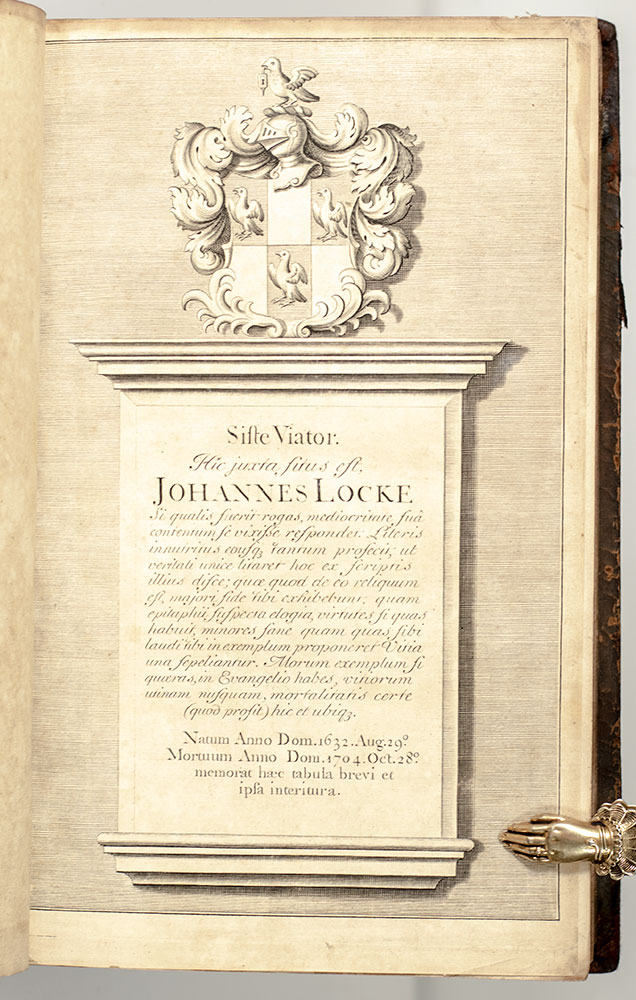 Siſte Viator.
Hic juxta ſitus eſt,
JOHANNES LOCKE
Si qualis fuerit rogas, mediocritate ſuâ
contentum ſe vixiſse reſpondet. Literis
innutritus eouſq; tantum profecit, ut
veritati unice litaret hoc ex ſcriptis
illius diſce; quæ quod de eo reliquum
eſt, majori fide tibi exhibebunt; quam
epitaphii ſuſpecta elogia, virtutes ſi quas
habuit, minores ſane quam quas ſibi
laudi tibi in exemplum proponeret Vitia
una ſepeliantur. Morum exemplum ſi
quæras, in Evangelio habes, vitiorum
utinam nuſquam, mortalitatis certe
(quod proſit) hic et ubiq;.
Natum Anno Dom. 1632. Aug. 29º.
Mortuum Anno Dom. 1704. Oct. 28º.
memorat hæc tabula brevi et
ipſa interitura.